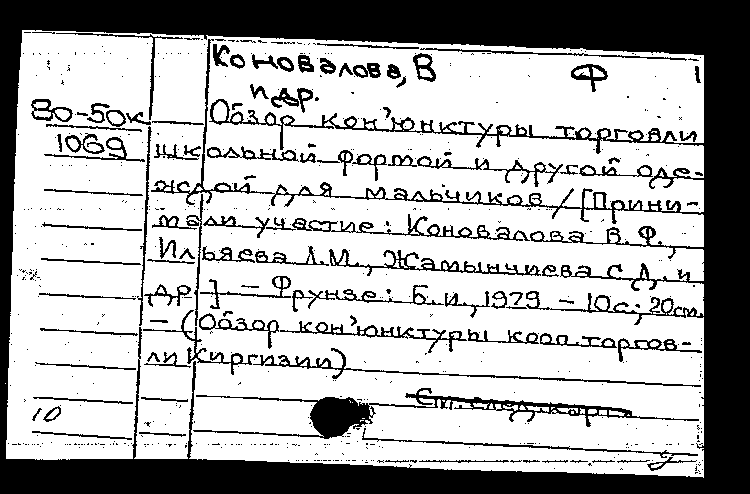 Коновалова, В Ф 1
и др.
80-50к Обзор кон'юнктуры торговли
1069 школьной формой и другой оде-
ждой для мальчиков / [Прини-
мали участие: Коновалова В.Ф.,
Ильяева Л.М., Жамынчиева С.Д. и
др.] – Фрунзе: Б.и., 1979 – 10с; 20см.
– (Обзор кон'юнктуры кооп. торгов-
ли Киргизии)
См. след. карт.
10